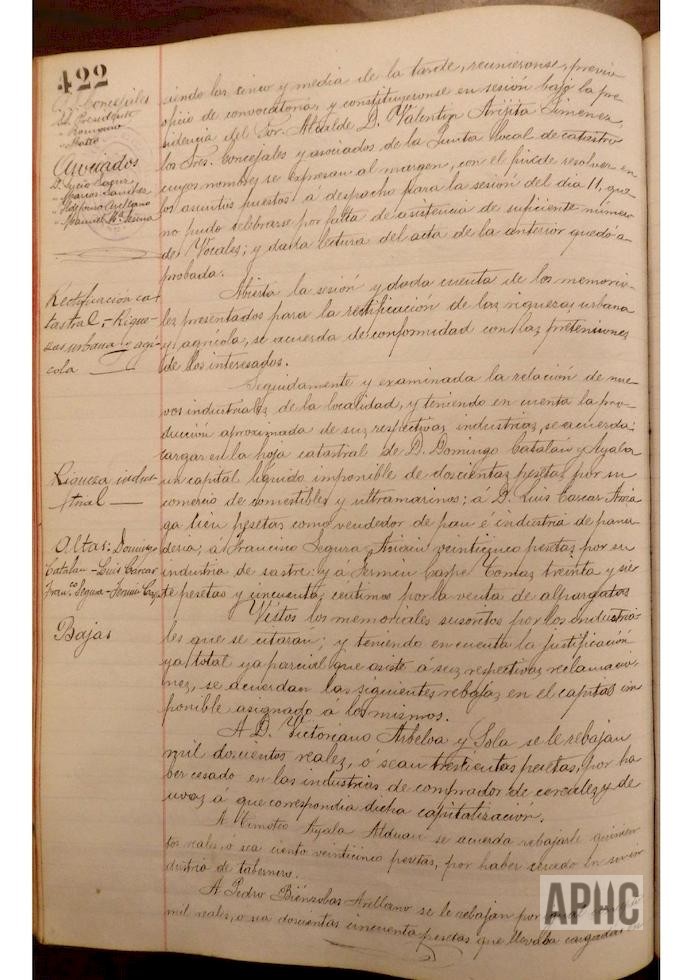 422
S. Concejales
Sr. Presidente
" Romano
" Matto
Asociados
D. Lucio
" Marcos Sanchez
" Ildefonso Arellano
" Manuel Mª Serna
siendo las cinco y media de la tarde, reunieronse, previo
oficio de convocatoria, y constituyeronse en sesión bajo la pre-
sidencia del Sor. Alcalde D. Valentin Arizita Jimenez,
los Sres. Concejales y asociados de la Junta local de catastro
cuyos nombres se expresan al margen, con el fin de resolver en
los asuntos puestos á despacho para la sesión del dia 11, que
no pudo celebrarse por falta de asistencia de suficiente número
de Vocales; y dada lectura del acta de la anterior quedó a-
probada.
Rectificación ca-
tastral.- Rique-
zas urbana y agrí-
cola
Abierta la sesión y dada cuenta de los memoria-
les presentados para la rectificación de las riquezas urbana
y agrícola, se acuerda de conformidad con las pretensiones
de los interesados.
Riqueza indus-
trial
Seguidamente y examinada la relación de nue-
vos industriales de la localidad, y teniendo en cuenta la pro-
ducción aproximada de sus respectivas industrias, se acuerda:
cargar en la hoja catastral de D. Domingo Catalán y Ayala
un capital líquido imponible de doscientas pesetas por su
comercio de comestibles y ultramarinos; a D. Luis Carcar
cien pesetas como vendedor de pan é industria de pana-
deria; á Francisco Segura Asiain veinticinco pesetas por su
industria de sastre: y á Fermin Carpe Tomas treinta y sie-
te pesetas y cincuenta centimos por la venta de alpargatas
Altas: Domingo
Catalan - Luis Carcar
Fran.co Segura - Fermin Carpe
Bajas
Vistos los memoriales suscritos por los industria-
les que se citarán; y teniendo en cuenta la justificación
ya total ya parcial que asiste á sus respectivas reclamacio-
nes, se acuerdan las siguientes rebajas en el capital im-
ponible asignado á los mismos.
A D. Victoriano Arbeloa y Sola se le rebajan
mil doscientos reales, ó sean trescientas pesetas, por ha-
ber cesado en las industrias de comprador de cereales y de
uvas á que correspondia dicha capitalización.
A Timoteo Ayala Alduan se acuerda rebajarle quinien-
tos reales, ó sea ciento veinticinco pesetas, por haber cesado en su in-
dustria de tabernero.
A Pedro Bienzobas Arellano se le rebajan por igual
mil reales, o sea doscientas cincuenta pesetas que llevaba cargadas
APHC